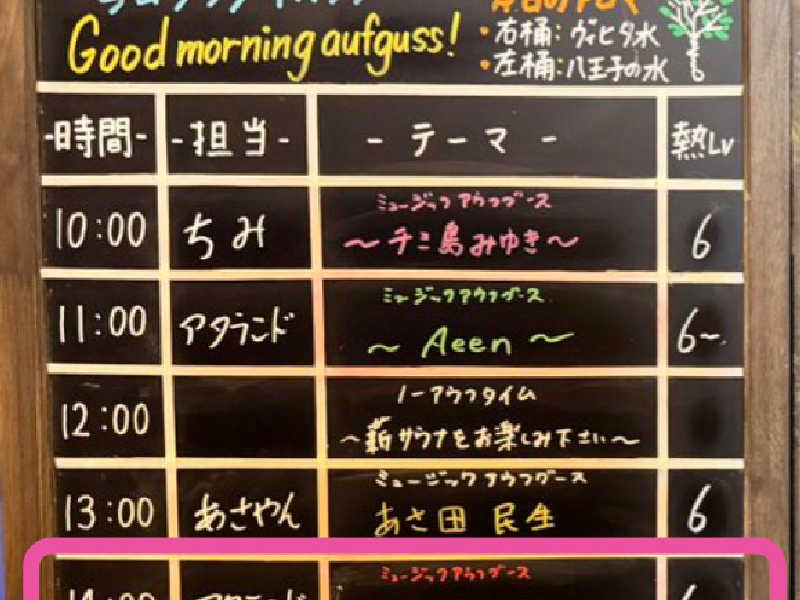 Good morning aufguss!
・右桶：ヴィヒタ水
・左桶：八王子の水
-時間- -担当- - テーマ - 熱Lv
ミュージックアウフグース
10:00 ちみ 〜チミ島みゆき〜 6
ミュージックアウフグース
11:00 アタランド 〜 Aeen 〜 6〜
ノーアウフタイム
12:00 〜薪サウナをお楽しみ下さい〜
ミュージックアウフグース
13:00 あさやん あさ田 民生 6
ミュージックアウフグース